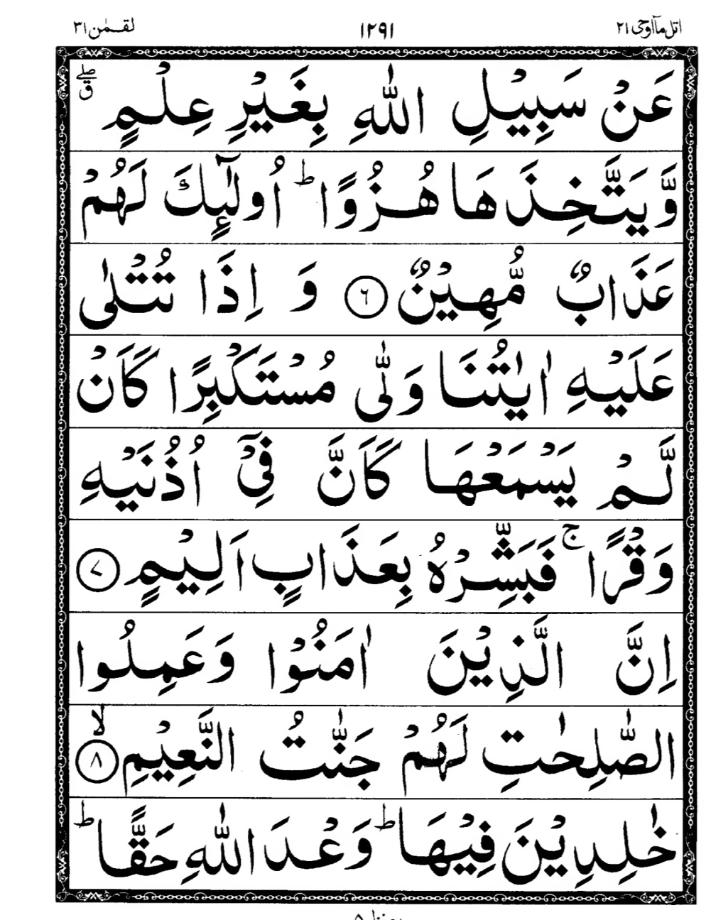 اتل مآاوحی ۲۱ ۱۲۹۱ لقمٰن ۳۱
عَنْ سَبِيْلِ اللّٰهِ بِغَيْرِ عِلْمٍ ۖق
وَّيَتَّخِذَهَا هُزُوًا ؕ اُولٰٓئِكَ لَهُمْ
عَذَابٌ مُّهِيْنٌ ۶ وَ اِذَا تُتْلٰى
عَلَيْهِ اٰيٰتُنَا وَلّٰى مُسْتَكْبِرًا كَاَنْ
لَّمْ يَسْمَعْهَا كَاَنَّ فِيْٓ اُذُنَيْهِ
وَقْرًا ۚ فَبَشِّرْهُ بِعَذَابٍ اَلِيْمٍ ۷
اِنَّ الَّذِيْنَ اٰمَنُوْا وَعَمِلُوا
الصّٰلِحٰتِ لَهُمْ جَنّٰتُ النَّعِيْمِ ۸ ۙ
خٰلِدِيْنَ فِيْهَا ؕ وَعْدَ اللّٰهِ حَقًّا ؕ